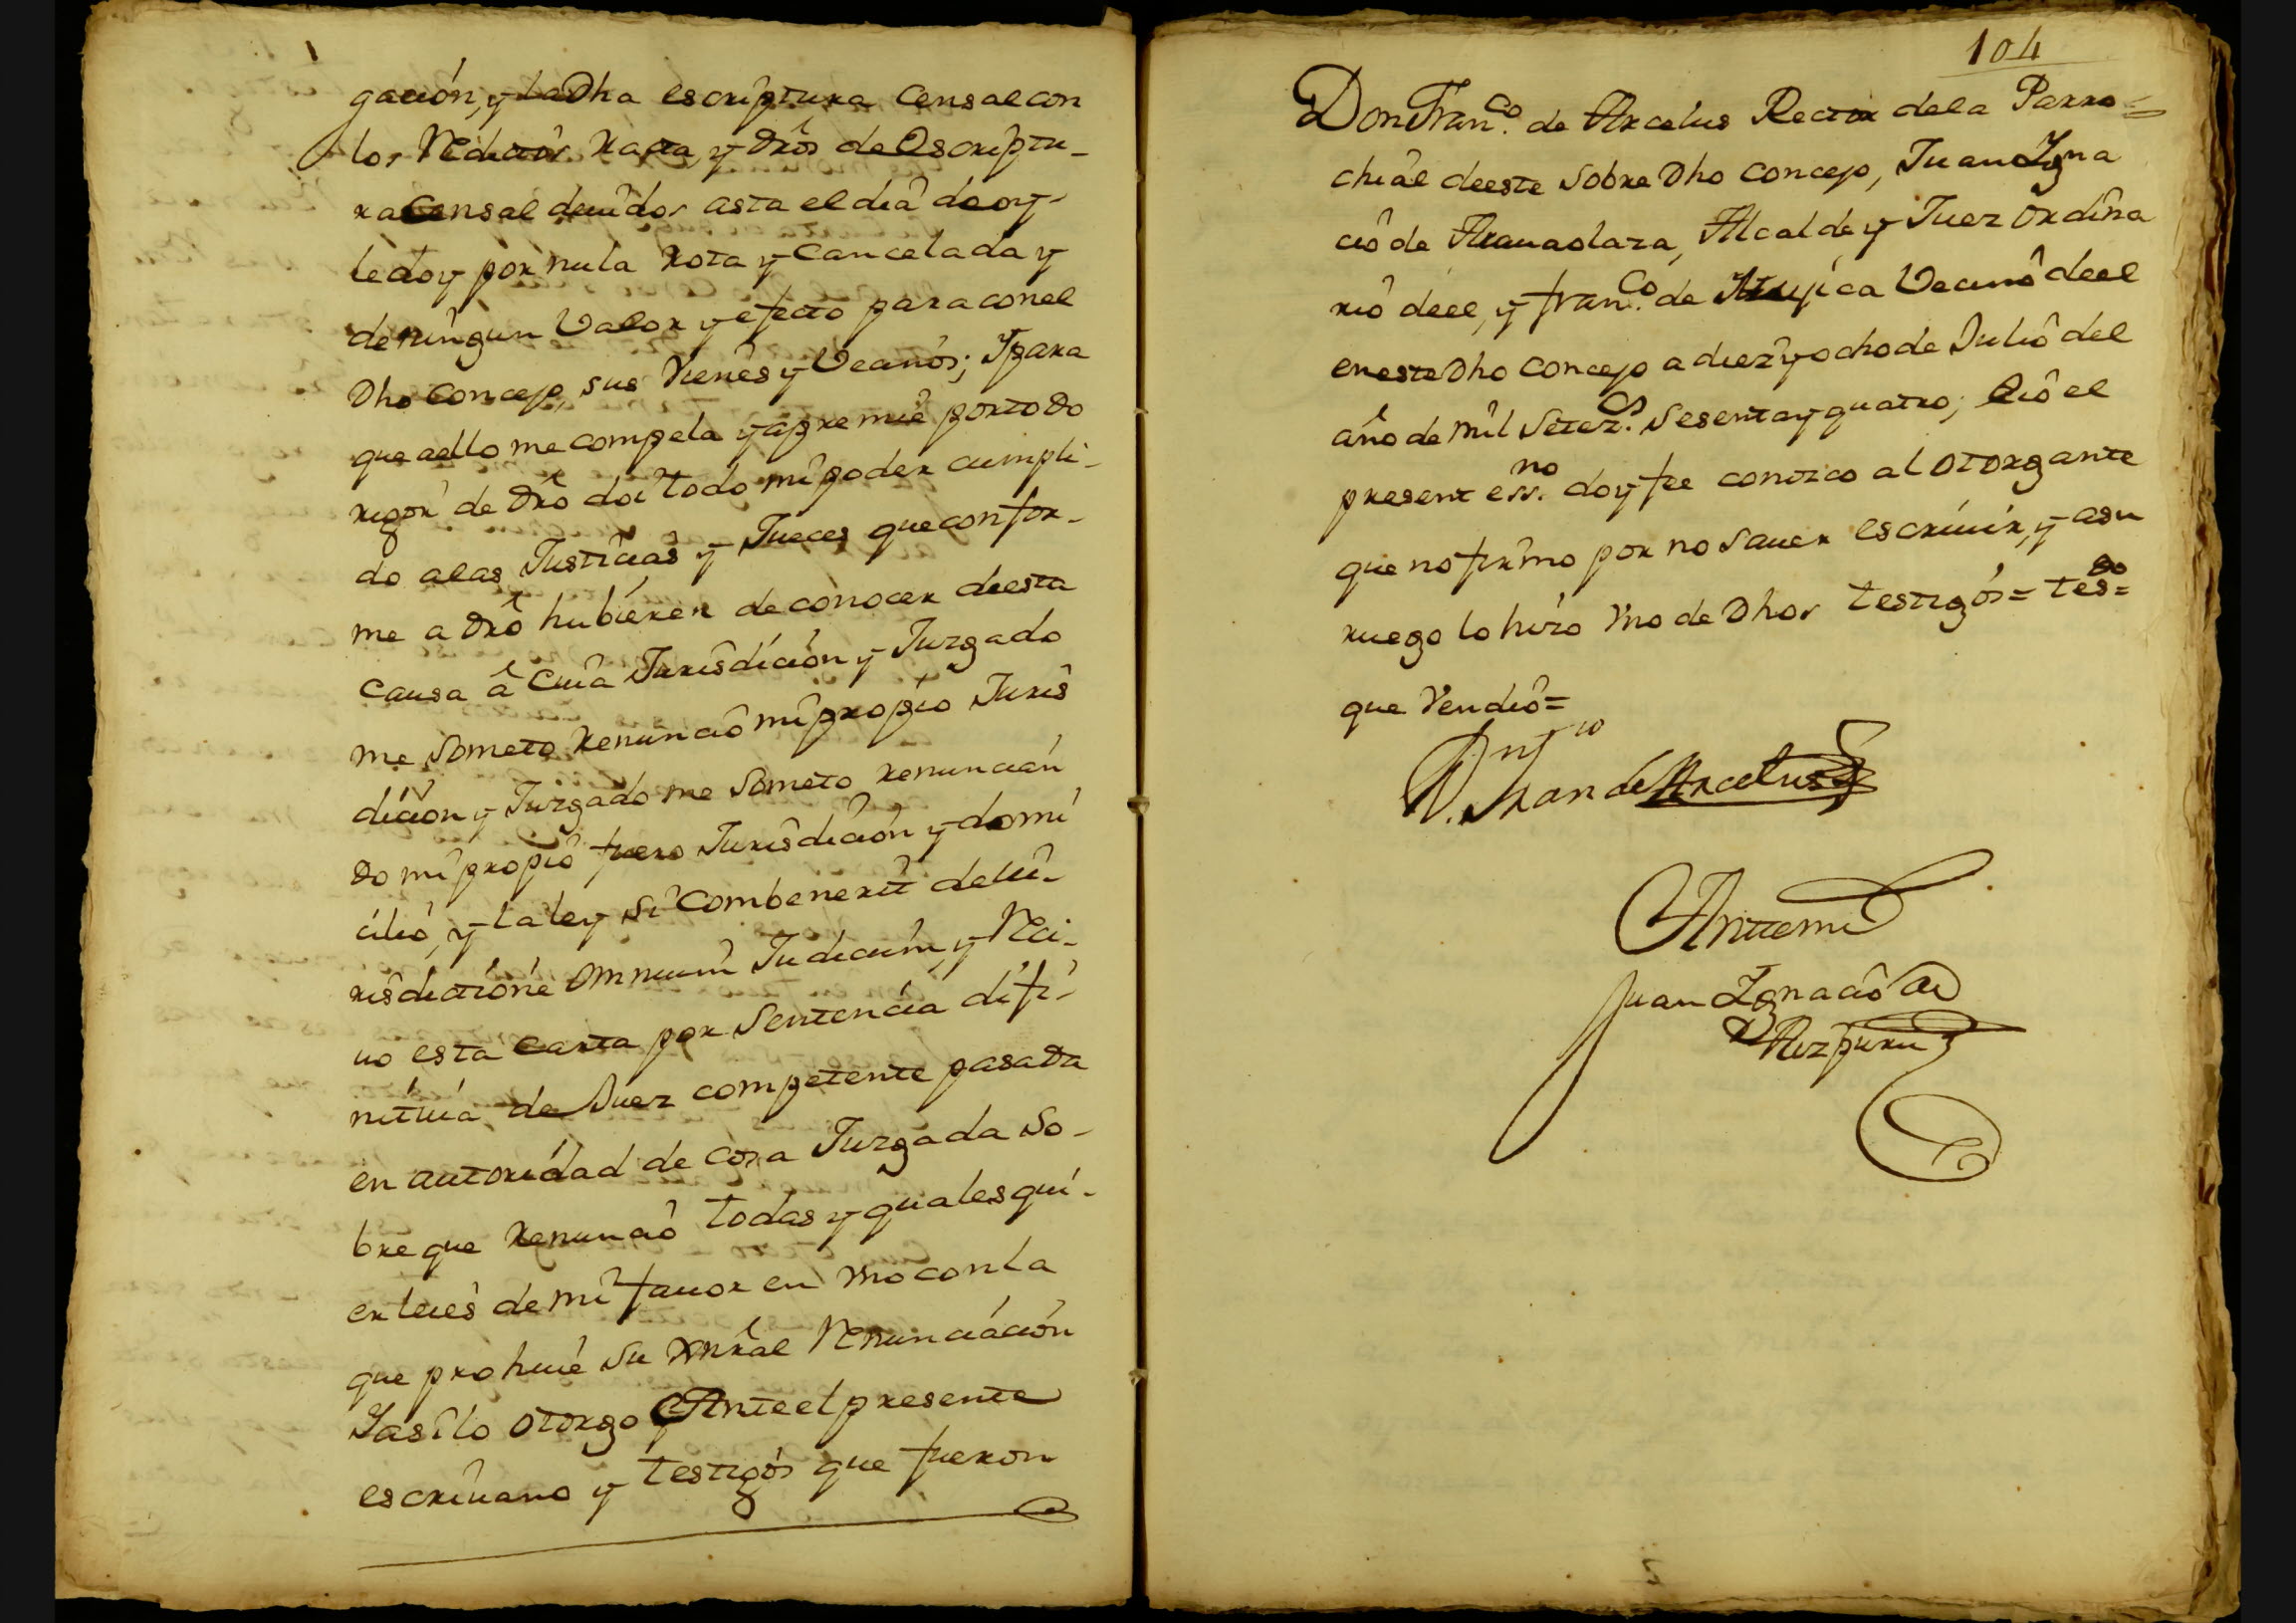 gación, y la Dha escriptura Censal con
los Reditos rata, y drôs de Escriptu-
ra Censal deuîdos asta el diâ de oy-
le doy por nula Rota y Cancelada y
de ningun Valor y efecto para con el
Dho Concejo, sus Vienês y Vecinôs; Y para
que a ello me compela y apremiê por todo
rigor de drô doi todo mi poder cumpli-
do a las Justicias y Jueces que confor-
me a drô hubieren de conocer de esta
causa â Cuiâ Jurisdición y Juzgado
me Someto Renunciô mi propio Juris
dición y Juzgado me Someto renuncian
do mi propiô fuero Jurisdición y domi
ciliô, y la ley Si Combenerit de Iu-
risdictioné Omnium Judicum, y Reci-
uo esta Carta por Sentencia difi-
nitiuia de Juez competente pasada
en autoridad de cosa Juzgada So-
bre que Renunciô todas y quales qui-
er leiês de mi fauor en Vno con la
que prohiuê Su Xnrâl Renunciación
Y asi lo otorgo Ante el presente
escriuano y testigôs que fueron
104
Don Franco. de Arcelus Rector de la Parro=
chiâl de este Sobre Dho Concejo, Juan Igna
ciô de , Alcalde y Juez Ordina
riô de el, y Franco. de Vecinô de el
en este Dho Concejo a diez y ocho de Juliô del
año de mil Setezos. Sesenta y quatro; è iô el
present essno. doy fee conozco al otorgante
que no firmo por no Sauer escriuir, y a su
ruego lo hizo Vno de Dhos testigôs = tesdo=
que Vendiô=
D. Fran de Arcelus
Ante mi
Juan Ignaciô de
Aizpuru